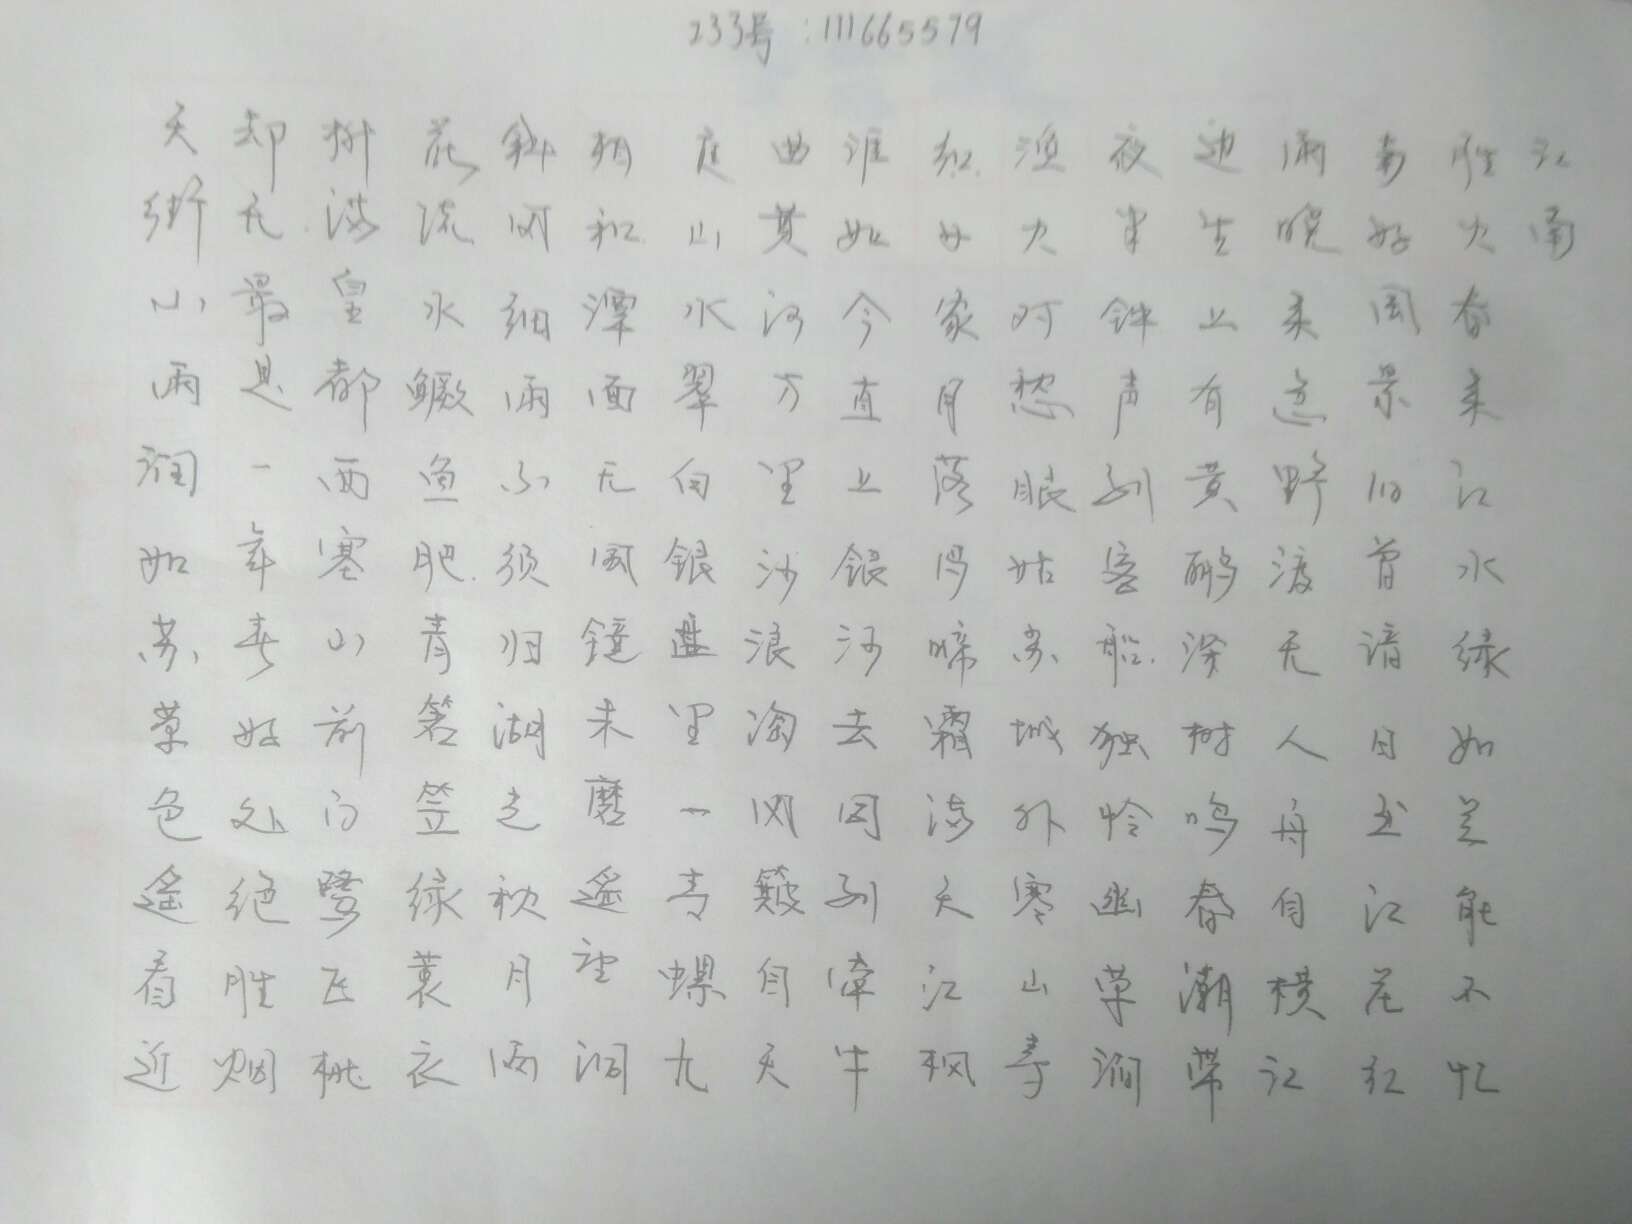 233号:111665579
江南
胜火春来江水绿如兰能不忆
南好风景旧曾谙日出江花红
雨晚来急野渡无人舟自横江
边生上有黄鹂深树鸣春潮带
夜半钟声到客船独怜幽草涧
渔火对愁眠姑苏城外寒山寺
织女家月落乌啼霜满天江枫
涯如今直上银河去同到牵牛
曲黄河万里沙浪淘风簸自天
庭山水翠白银盘里一青螺九
相和潭面无风镜未磨遥望洞
斜风细雨不须归湖光秋月两
花流水鳜鱼肥青箬笠绿蓑衣
柳满皇都西塞山前白鹭飞桃
却无最是一年春好处绝胜烟
天街小雨润如苏草色遥看近